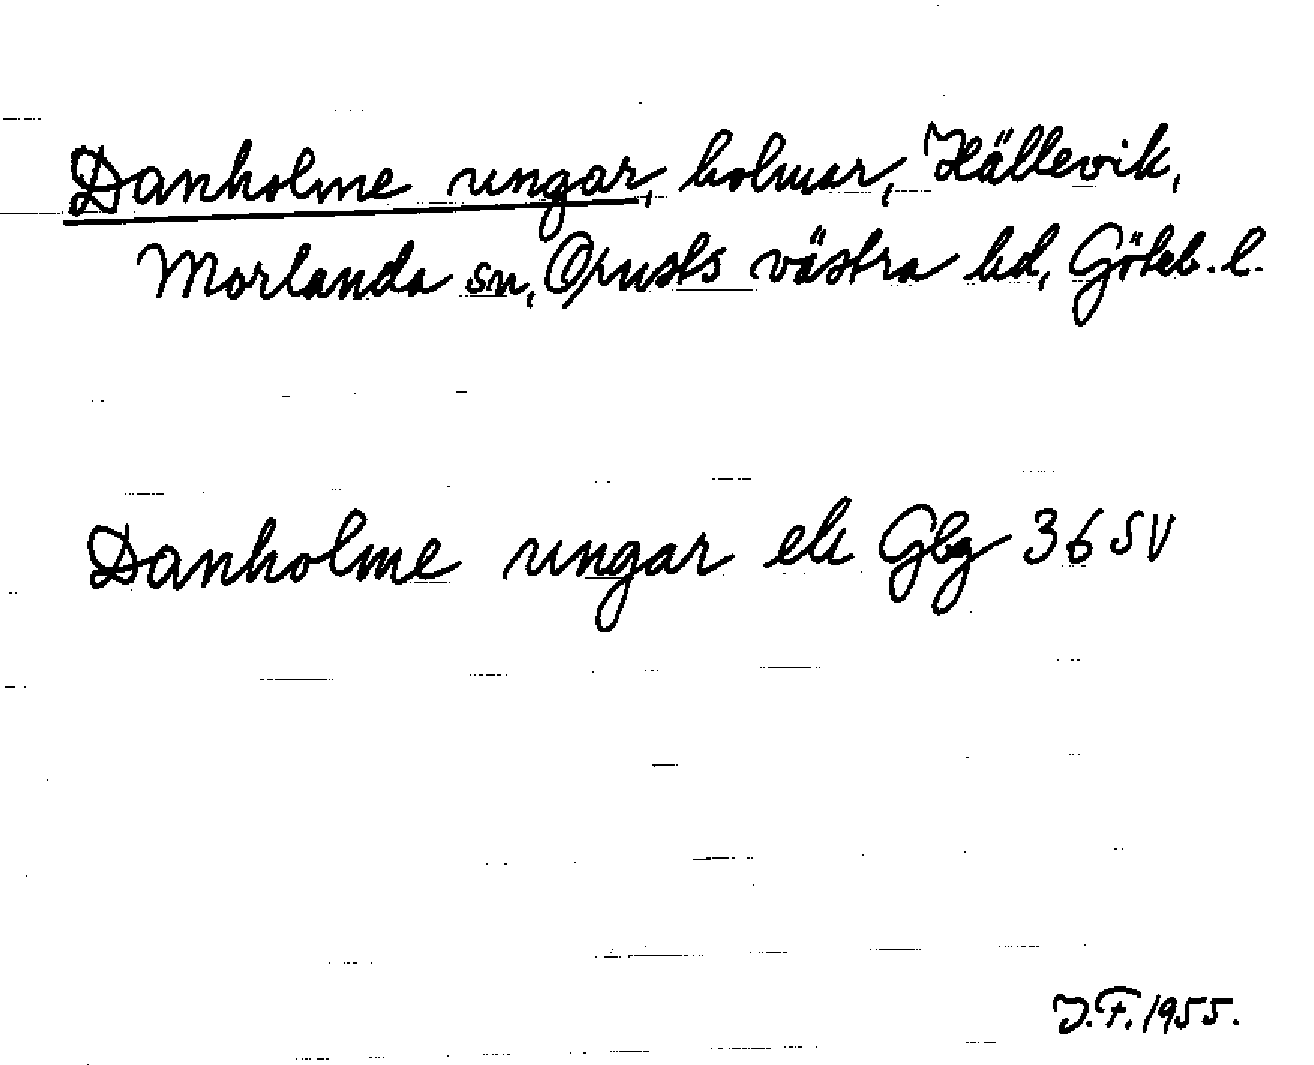 Danholme ungar, holmar, Hällevik,
Morlanda sn, Orusts västra hd, Göteb. l.
Danholme ungar ek Gbg 36 SV
J.F. 1955.